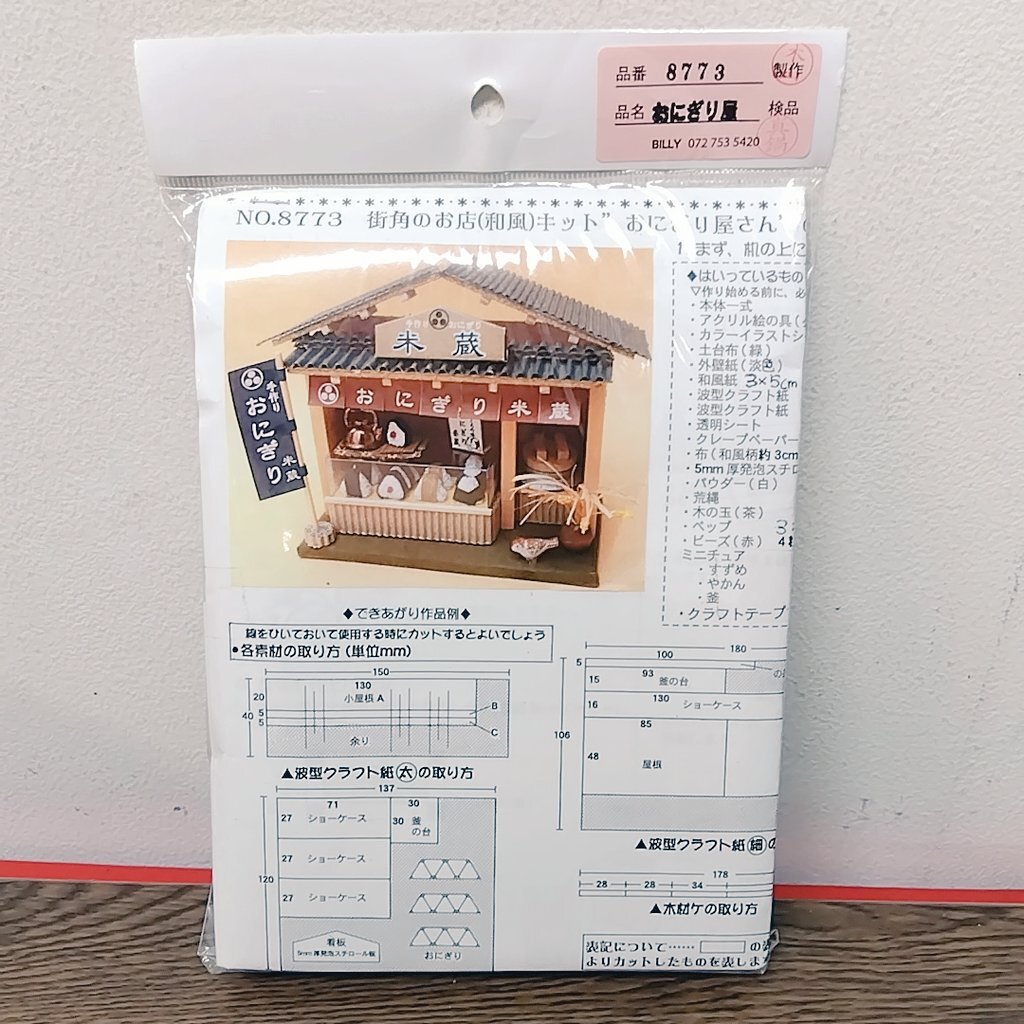 品番 8773 製作
品名 おにぎり屋 検品
BILLY 072 753 5420
NO.8773 街角のお店(和風)キット”おにぎり屋さん”
まず、机の上に
◆はいっているもの
▽作り始める前に、必
・本体一式
・アクリル絵の具(
・カラーイラストシ
・土台布(緑)
・外壁紙(淡色)
・和風紙 3×5cm
・波型クラフト紙
・波型クラフト紙
・透明シート
・クレープペーパー
・布(和風柄約3cm
・5mm厚発泡スチロ
・パウダー(白)
・荒縄
・木の玉(茶)
・ペップ 3
・ビーズ(赤) 4
ミニチュア
・すずめ
・やかん
・釜
・クラフトテープ
手作り おにぎり
米蔵
おにぎり米蔵
手作り
おにぎり
米蔵
◆できあがり作品例◆
線をひいておいて使用する時にカットするとよいでしょう
●各素材の取り方(単位mm)
150
130
小屋根A
20
40
5
5
B
C
余り
▲波型クラフト紙(太)の取り方
137
71
30
27 ショーケース
30 釜の台
27 ショーケース
120
27 ショーケース
看板
5mm厚発泡スチロール板
おにぎり
180
100
5
15
93
釜の台
の
16
130
ショーケース
106
85
48
屋根
▲波型クラフト紙(細)の
178
28 28 34
▲木材ケの取り方
表記について……
の
よりカットしたものを表しま